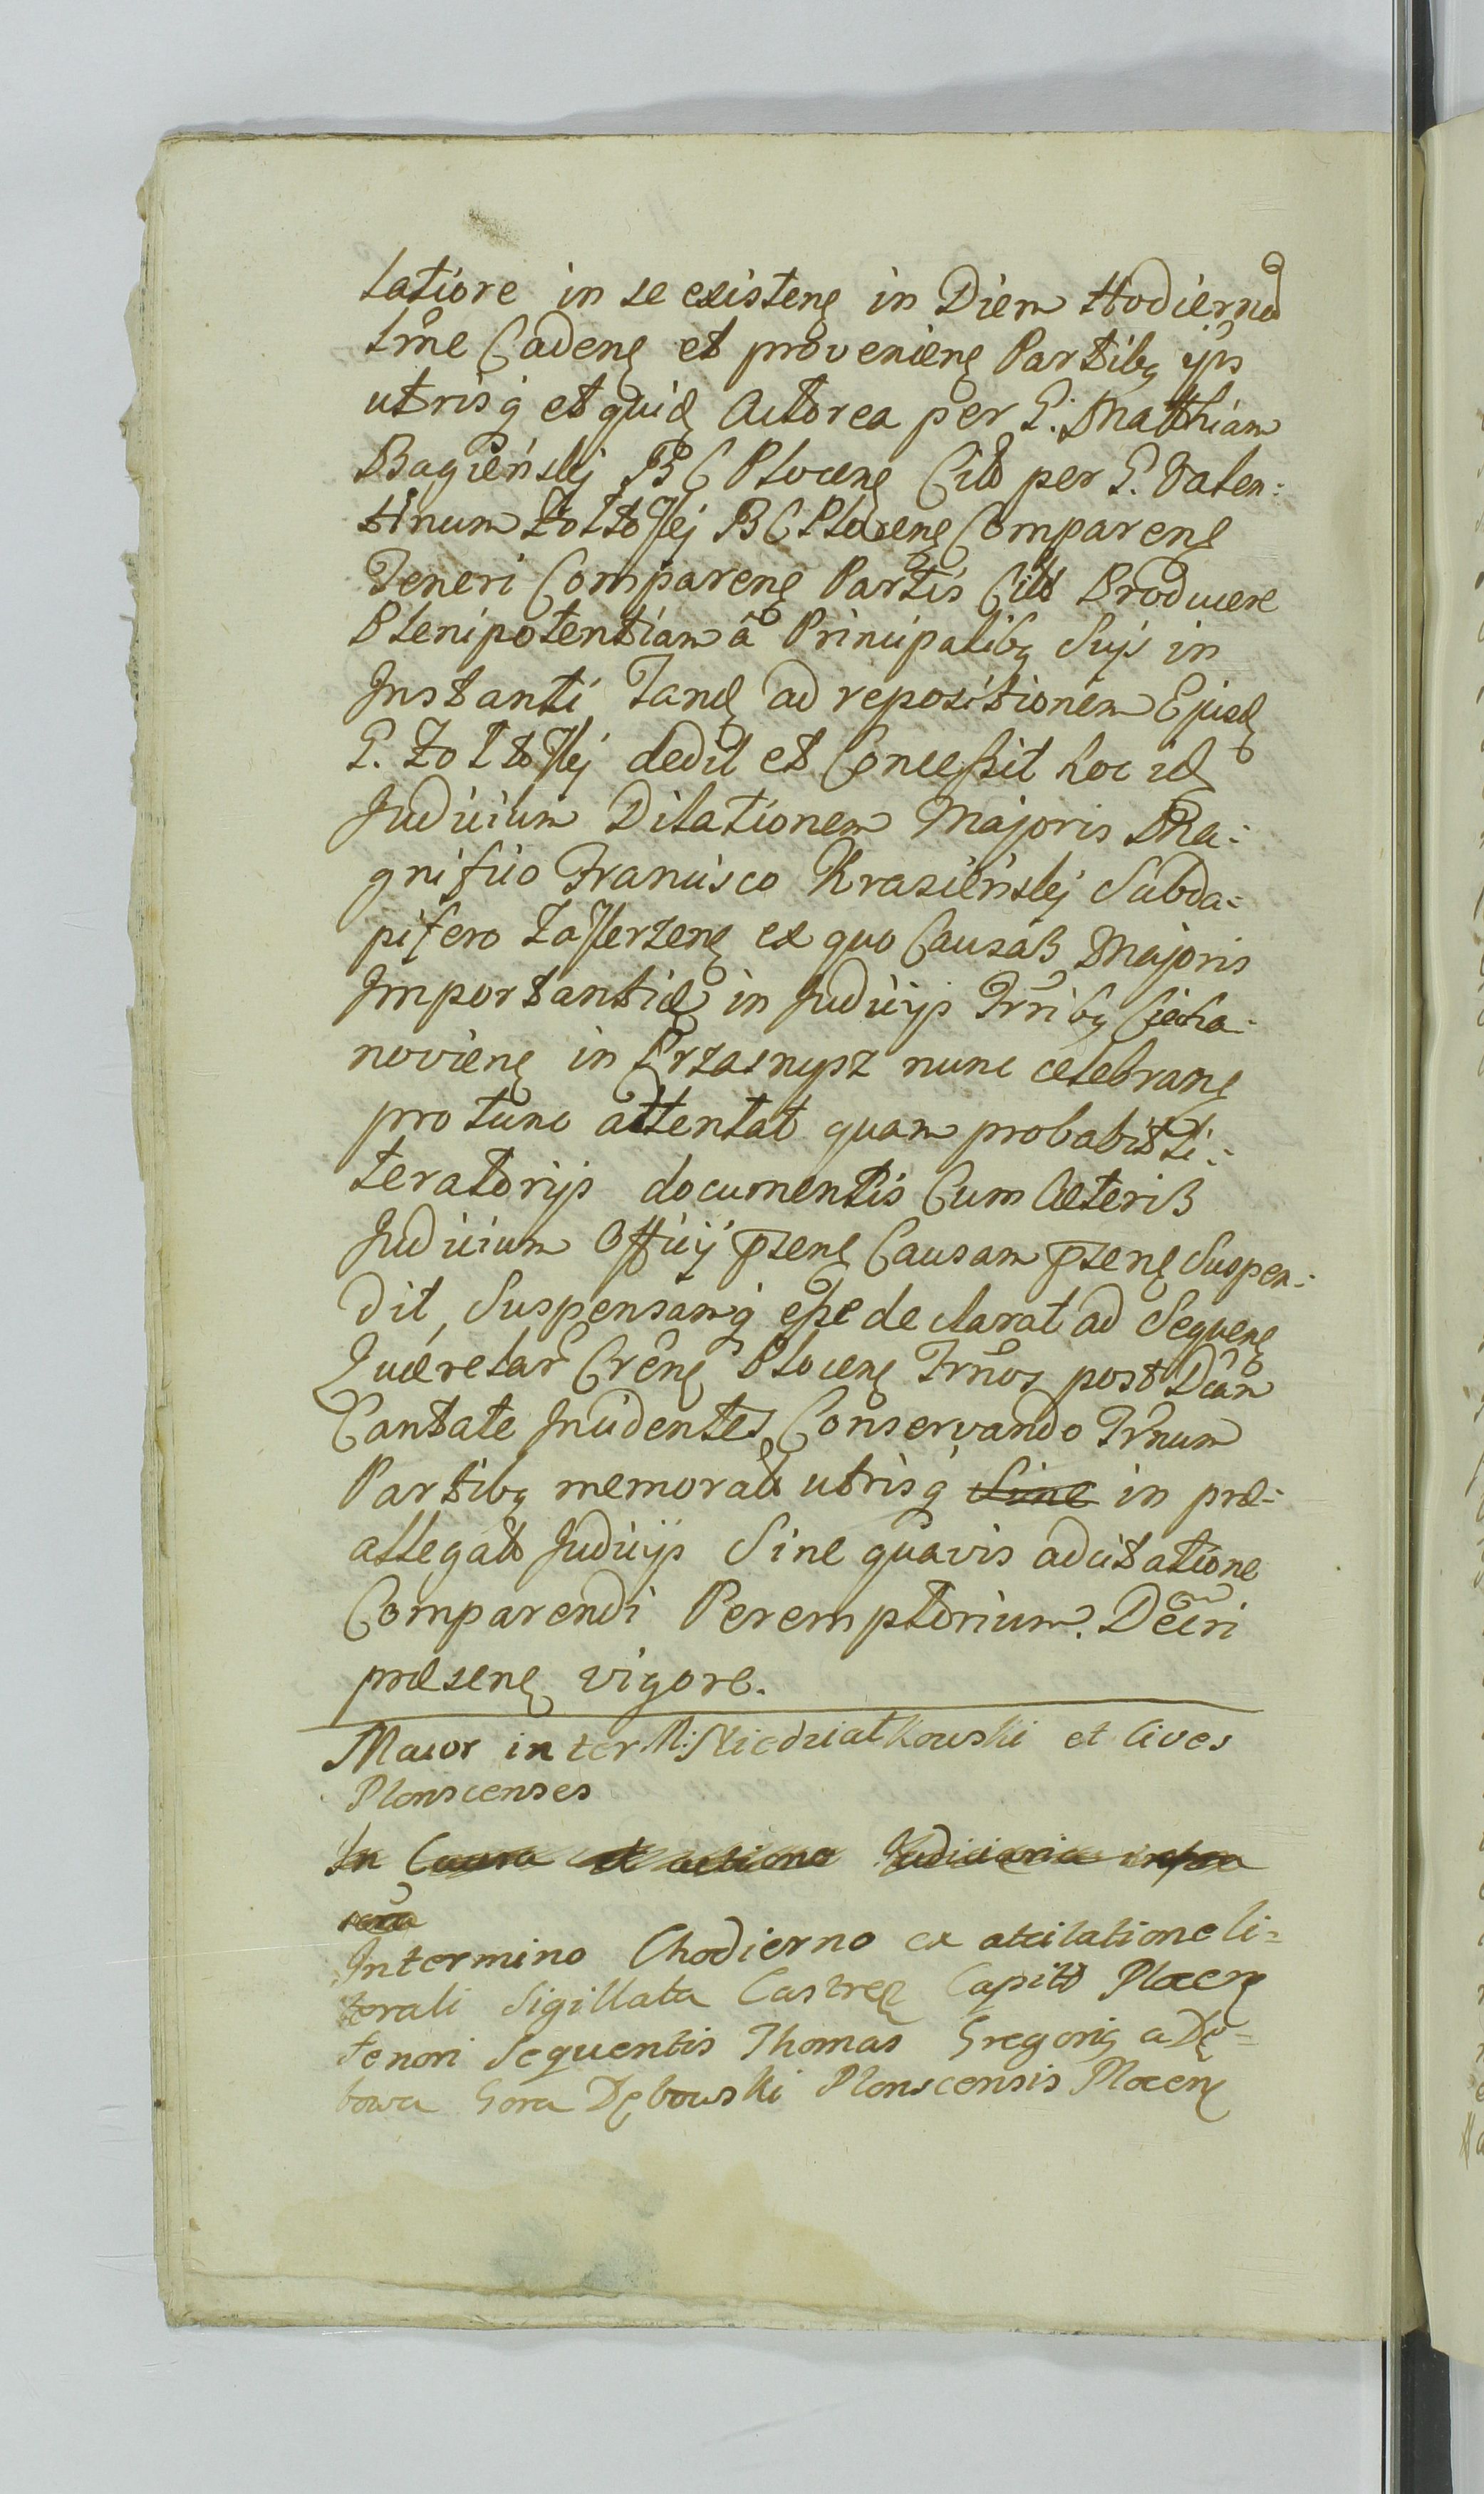 latiore in se existenȩ in Diem Hodiernũ
tm̃e Cadenȩ et provenienȩ Partibꝫ ijs
utrisq̨ et quidȩ Actorea per G: Matthiam
Bagieńskj BC Plocenȩ Cito per G. Valen:
tinum Zołtoſkj BC Plocenȩ Comparenȩ
Teneri Comparenȩ Partis Cito Producere
Plenipotentiam â Principalibꝫ Suis in
Instanti Tandȩ ad repositionem Ejusdȩ
G. Zołtoſkj dedit et Conceſsit hoc idȩ
Judicium Dilationem Majoris Ma:
gnifico Francisco Krasieńskj Subda:
pifero Zaſkrzenȩ ex quo Causas Majoris
Importantiæ in Judicijs Trr̃ibꝫ Ciecha:
novienȩ in Przasnysz nunc celebranȩ
pro tunc attentat quam probabit li:
teratorijs documentis Cum Cæteris
Judicium Officij p̃senȩ Causam p̃senȩ Suspen:
dit, Suspensamq̨ eſse declarat ad Sequenȩ
Quærelar̃ Cr̃enȩ Plocenȩ Trm̃os post Dcãm
Cantate Incidentes Conservando Trm̃um
Partibꝫ memorato utrisq̨ Sine in præ:
allegato Judicijs Sine quavis adcitatione
Comparendi Peremptorium. Decr̃i
præsenȩ vigore.
Maior inter M: Niedzialkowski et Cives
Plonscenses
In Causa et actione Judiciaria
Intermino Chodierno ex atcitatione li=
terali Sigillata Castreȩ Capito Plocenȩ
tenori Sequentis Thomas Gregoriꝫ a Dę=
bowa Gora Dębowski Plonscensis Plocenȩ